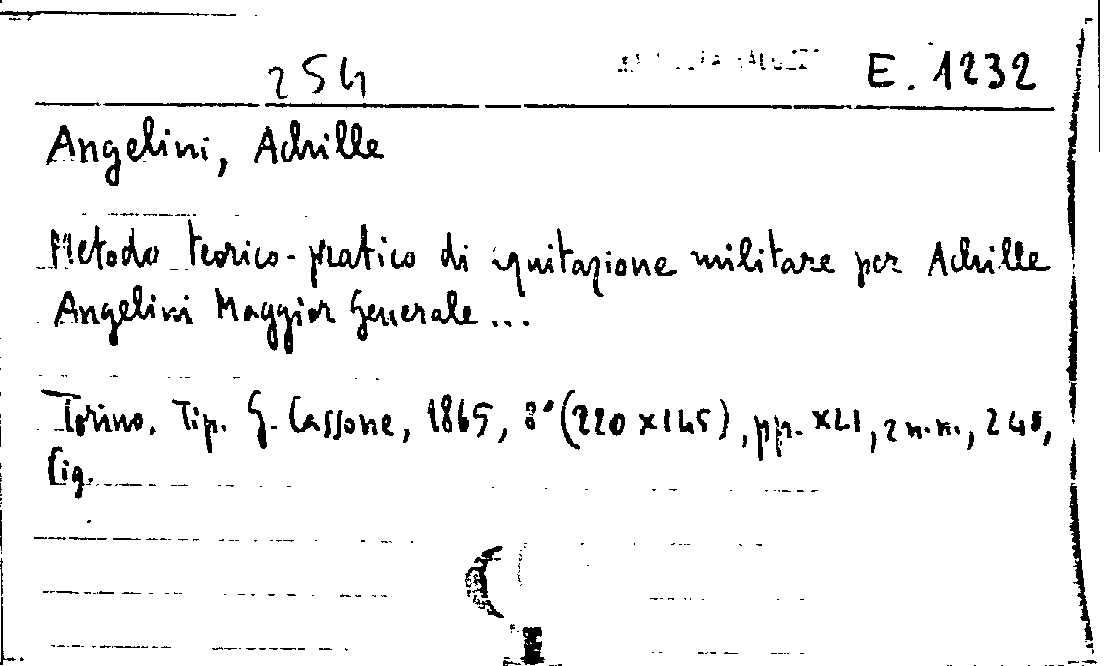 254 E. 1232
Angelini, Achille
Metodo teorico-pratico di equitazione militare per Achille
Angelini Maggior Generale...
Torino, Tip. G. Cassone, 1865, 8° (220 x 145), pp. XLI, 2 n.n., 240,
fig.